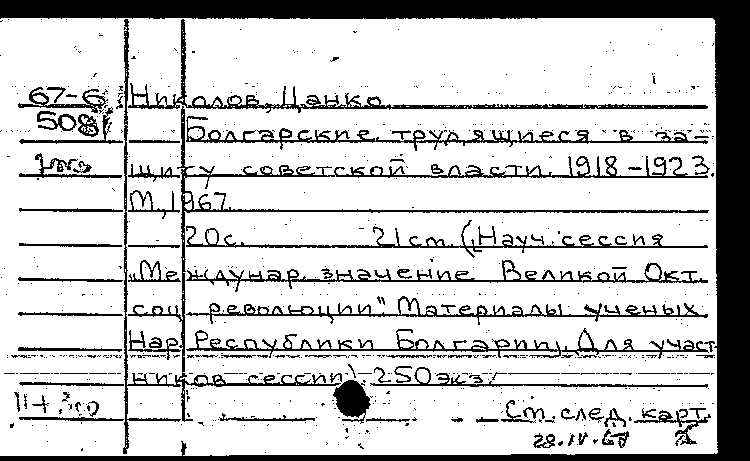 67-6 Николов, Цанко
5081 Болгарские трудящиеся в за-
щиту советской власти. 1918-1923.
М., 1967.
20с. 21 см. (Науч. сессия
"Междунар. значение Великой Окт.
соц. революции". Материалы ученых
Нар. Республики Болгарии). Для участ-
ников сессии). 250 экз.
См. след. карт.
28.IV.67